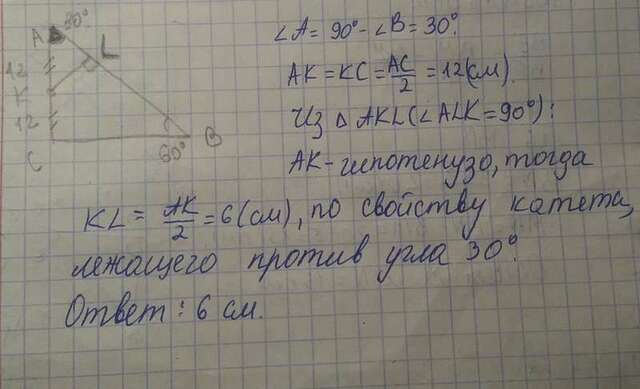 30°
A
L
12
K
12
C
60°
B
∠A = 90° - ∠B = 30°.
AK = KC = AC/2 = 12(см).
Из △ AKL(∠ALK = 90°):
AK - гипотенузо, тогда
KL = AK/2 = 6(см), по свойству катета,
лежащего против угла 30°.
Ответ: 6 см.